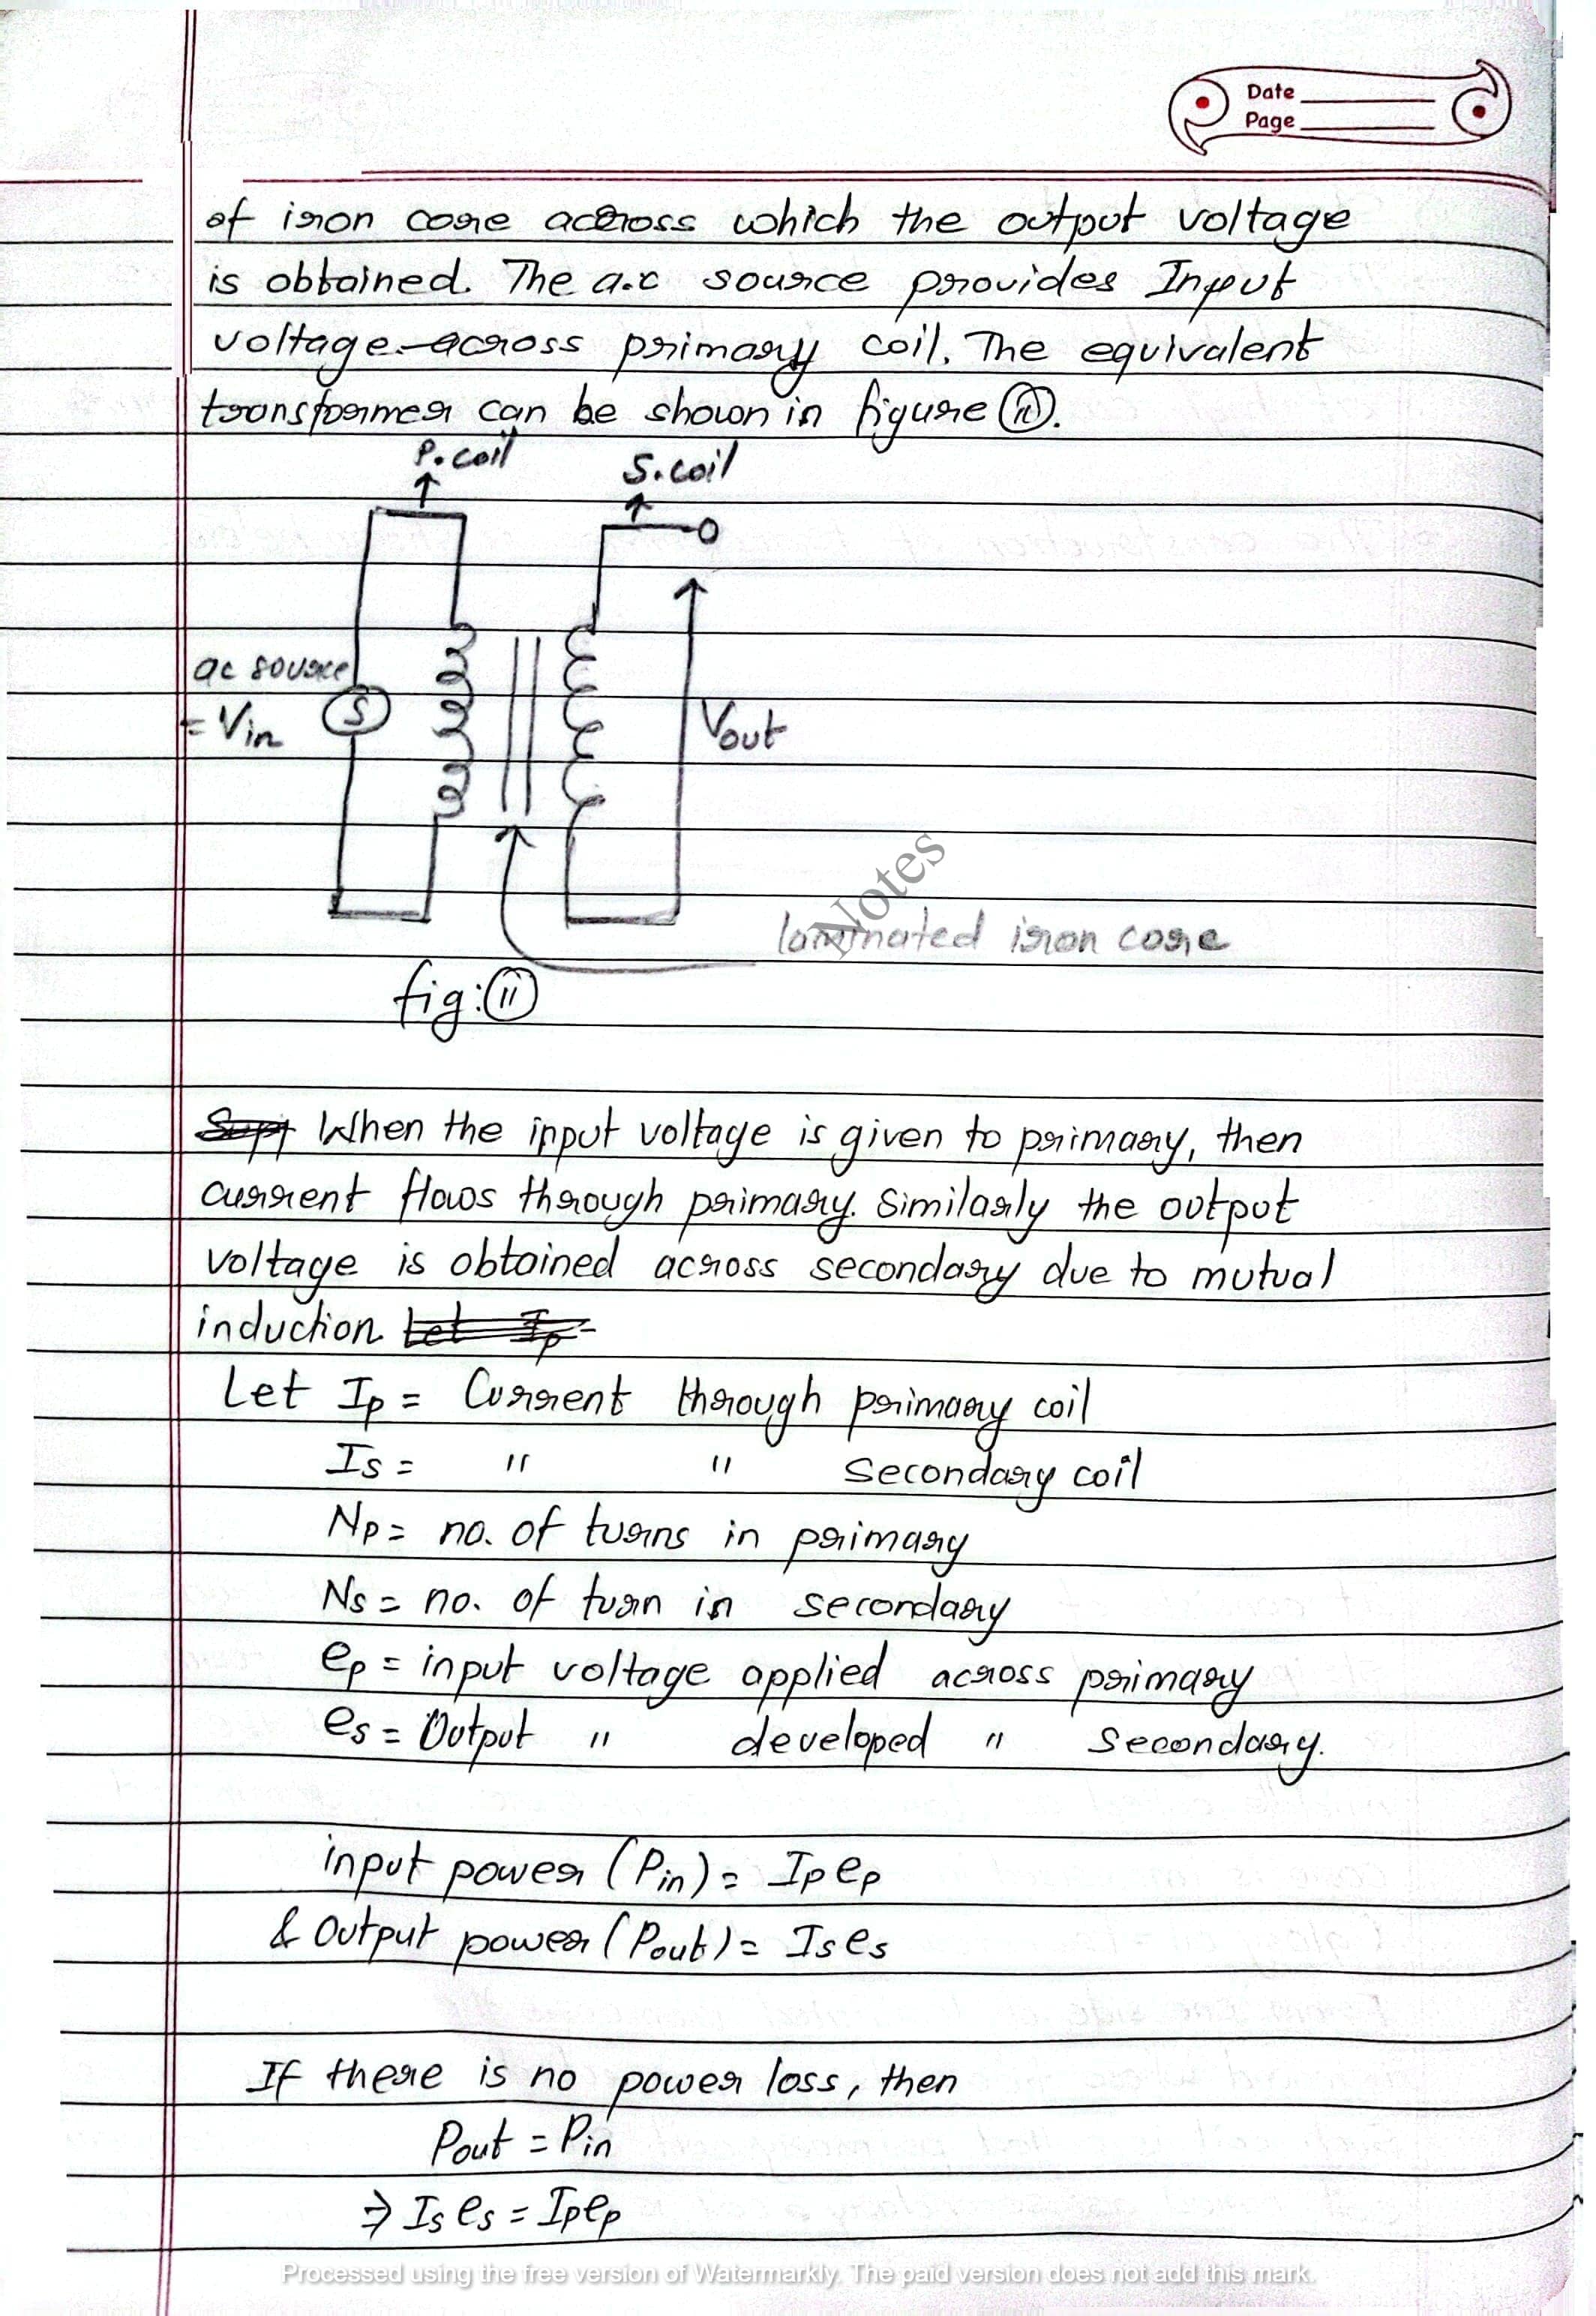 Date
Page
of iron core across which the output voltage
is obtained. The a.c source provides Input
voltage across primary coil. The equivalent
transformer can be shown in figure (ii).
P. coil
S. coil
ac source
= Vin
S
Vout
Notes
laminated iron core
fig: (ii)
When the input voltage is given to primary, then
current flows through primary. Similarly the output
voltage is obtained across secondary due to mutual
induction Let Ip =
Let Ip = Current through primary coil
Is = " " Secondary coil
Np = no. of turns in primary
Ns = no. of turn in secondary
ep = input voltage applied across primary
es = Output " developed " Secondary.
input power (Pin) = Ip ep
& Output power (Pout) = Is es
If there is no power loss, then
Pout = Pin
⇒ Is es = Ip ep
Processed using the free version of Watermarkly. The paid version does not add this mark.